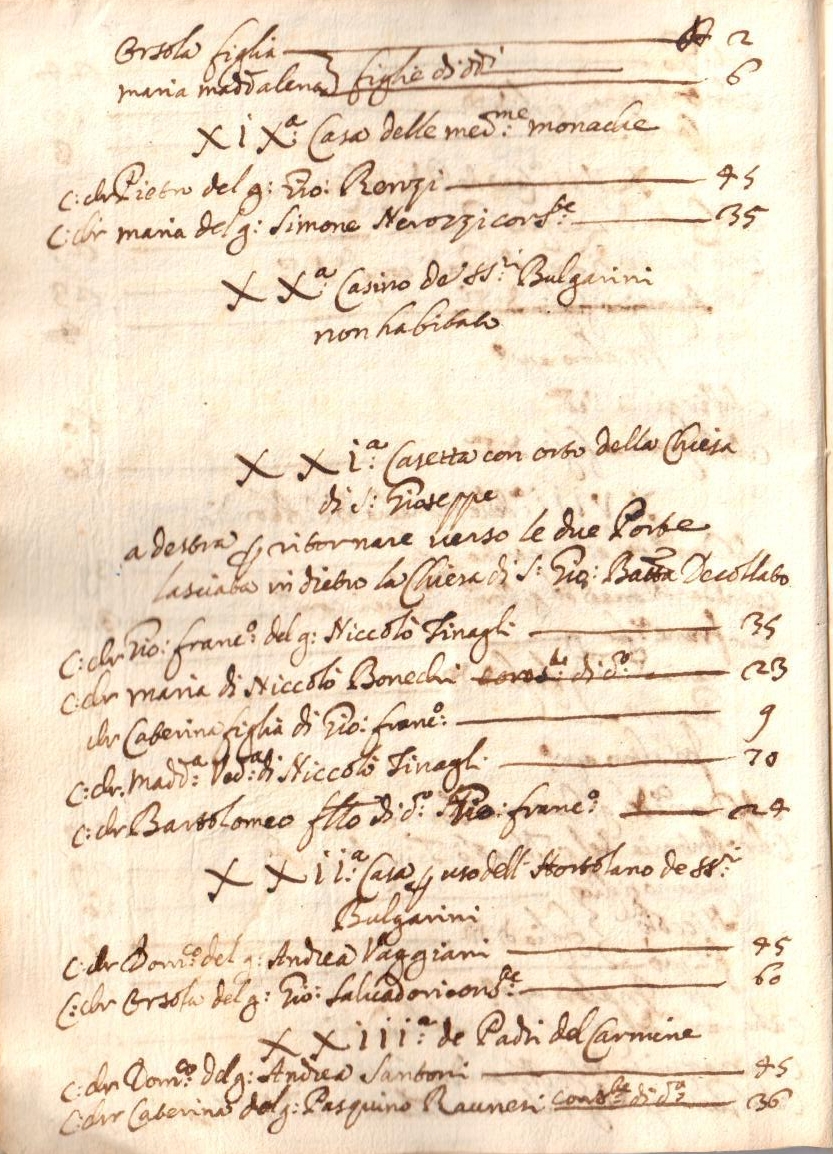 Orsola figlia 2
maria maddalena} figlie di dti 6
X i X.a Casa delle med:me monache
C: chr Pietro del q: Gio: Renzi 45
C: chr maria del q: Simone Nerozzi cons:te 35
X X.a Casino de SS:ri Bulgarini
non habitato
X X i.a Casetta con orto della Chiesa
di S: Gioseppe
a destra p ritornare verso le due Porte
lasciata in dietro la Chiesa di S: Gio: Batta Decollato
C: chr Gio: franc:o del q: Niccolò Tinagli 35
C: chr maria di Niccolò Bonechi di d:o 23
chr Caterina figlia di Gio: franc:o 9
C: chr: Madd:a Ved:a di Niccolò Tinagli 70
C: chr Bartolomeo fllo di d:o Gio: franc:o 24
X X i i.a Casa p uso dell' Hortolano de SS:ri
Bulgarini
C: chr Dom:co del q: Andrea Vaggiani 45
C: chr Orsola del q: Gio: Salvadori cons:te 60
X X i i i.a de Padri del Carmine
C: chr Dom:co del q: Andrea Santoni 45
C: chr Caterina del q: Pasquino Raunesi cons:te di d:o 36